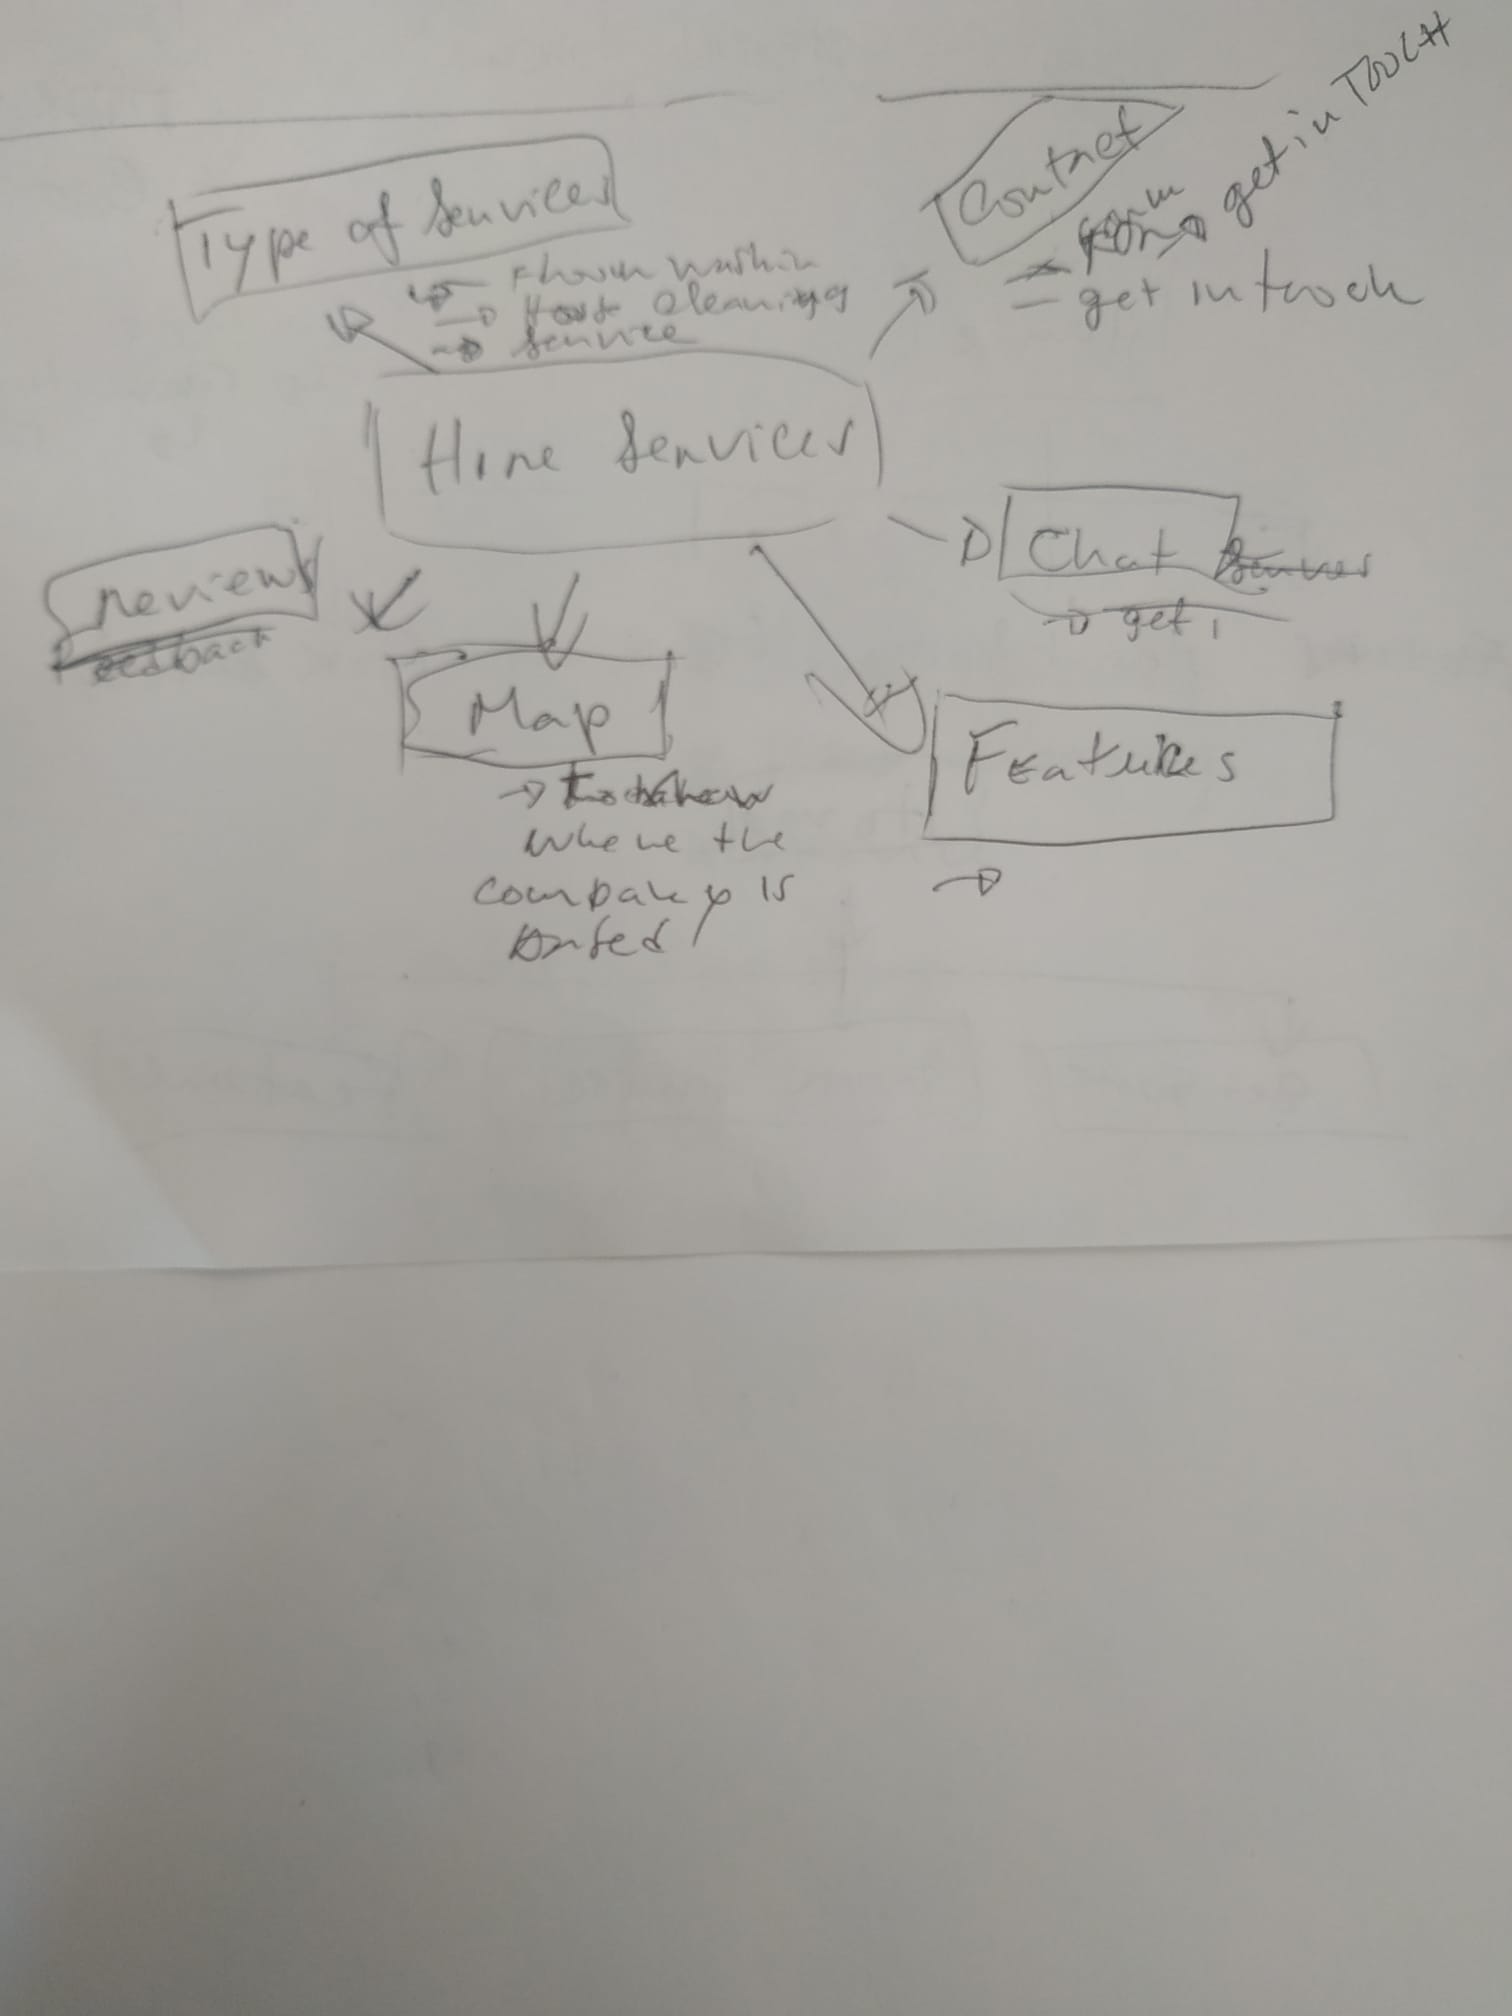 Type of Services
→ Floor washin
→ House cleaning
→ Service
Contact
= form → get in TOUCH
- get in touch
Hire Services
Chat Server
→ get i
Reviews
Feedback
Map
→ To show
where the
company is
Features
→